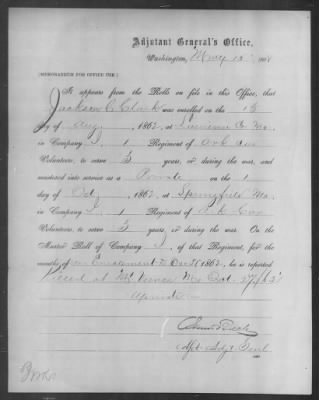 Adjutant General's Office,
Washington, May 13", 1868
[MEMORANDUM FOR OFFICE USE.]
It appears from the Rolls on file in this Office, that
Jackson C. Clark was enrolled on the 15
day of Aug, 1862, at Lawrence Co Mo.
in Company I, 1 Regiment of Ark Cav
Volunteers, to serve 3 years, or during the war, and
mustered into service as a Private on the 1
day of Oct, 1862, at Springfield Mo.
in Company I, 1 Regiment of Ark Cav
Volunteers, to serve 3 years, or during the war. On the
Muster Roll of Company I, of that Regiment, for the
months of Enrolment to Dec 31 1862, he is reported
Died at Mt Vernon Mo Oct. 27/62
Asst Adjt Genl